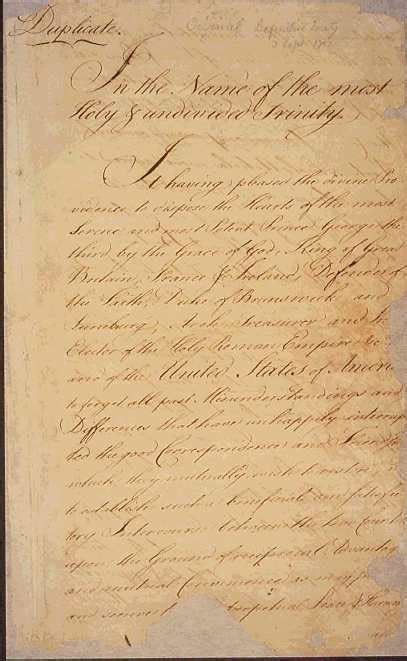 Duplicate.
Original Definitive Treaty
3 Sept. 1783
In the Name of the most
Holy & undivided Trinity.
It having pleased the divine Pro
vidence to dispose the Hearts of the most
Serene and most Potent Prince George the
third by the Grace of God, King of Great
Britain, France & Ireland, Defender of
the Faith, Duke of Brunswick and
Lunebourg, Arch Treasurer and
Elector of the Holy Roman Empire &c
and of the United States of America
to forget all past Misunderstandings and
Differences that have unhappily interrup
ted the good Correspondence and Friendship
which they mutually wish to restore;
to establish such a beneficial and satisfac
tory Intercourse between the two Countries
upon the Ground of reciprocal Advantages
and mutual Convenience as may
and secure perpetual Peace & Harmony
and